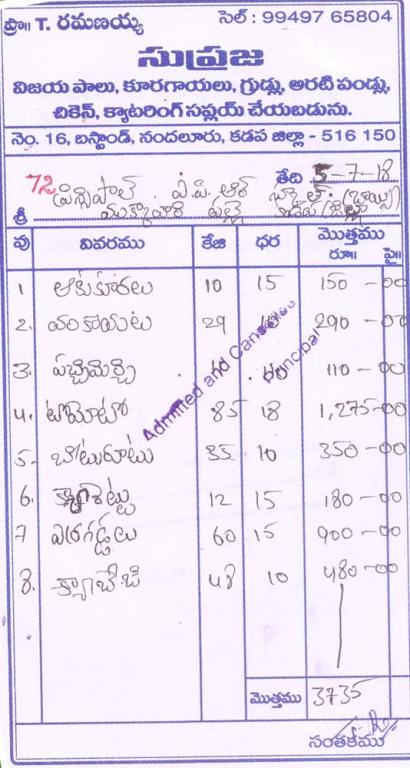 ప్రొ॥ T. రమణయ్య సెల్ : 99497 65804
సుప్రజ
విజయ పాలు, కూరగాయలు, గ్రుడ్లు, అరటి పండ్లు,
చికెన్, క్యాటరింగ్ సప్లయ్ చేయబడును.
నెం. 16, బస్టాండ్, నందలూరు, కడప జిల్లా - 516 150
72 తేది 5-7-18
ప్రిన్సిపాల్ ఎ.పి.ఆర్
శ్రీ
వు వివరము కేజి ధర మొత్తము రూ॥ పై॥
1 ఆకుకూరలు 10 15 150-00
2. వంకాయలు 29 290-00
3. పచ్చిమిర్చి 110-00
4. టొమోటో 85 18 1,275-00
5. బీటురూటు 35 10 350-00
6. 12 15 180-00
7 ఎర్రగడ్డలు 60 15 900-00
8. క్యాబేజి 48 10 480-00
Admitted and Cancelled
Principal
మొత్తము 3735
సంతకము